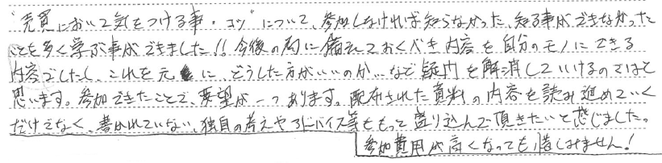 "売買において気をつける事・コツ"について、参加しなければ知らなかった、知る事ができなかった
ことを多く学ぶ事ができました!!今後の為に備えておくべき内容を自分のモノにできる
内容でしたし、これを元に、どうした方がいいのか…など疑問を解消していけるのではと
思います。参加できたことで、要望が一つあります。配布された資料の内容を読み進めていく
だけでなく、書かれていない独自の考えやアドバイス等をもっと盛り込んで頂きたいと感じました。
参加費用が高くなっても惜しみません!